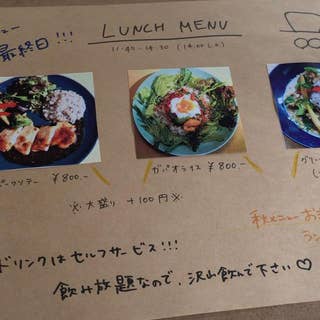 ュー
最終日!!!
LUNCH MENU
11:45-14:30 (14:00 L.O)
¥800.-
ガパオライス ¥800.-
※大盛り +100円※
秋メニュー お
ラン
ドリンクはセルフサービス!!!
飲み放題なので、沢山飲んで下さい♡